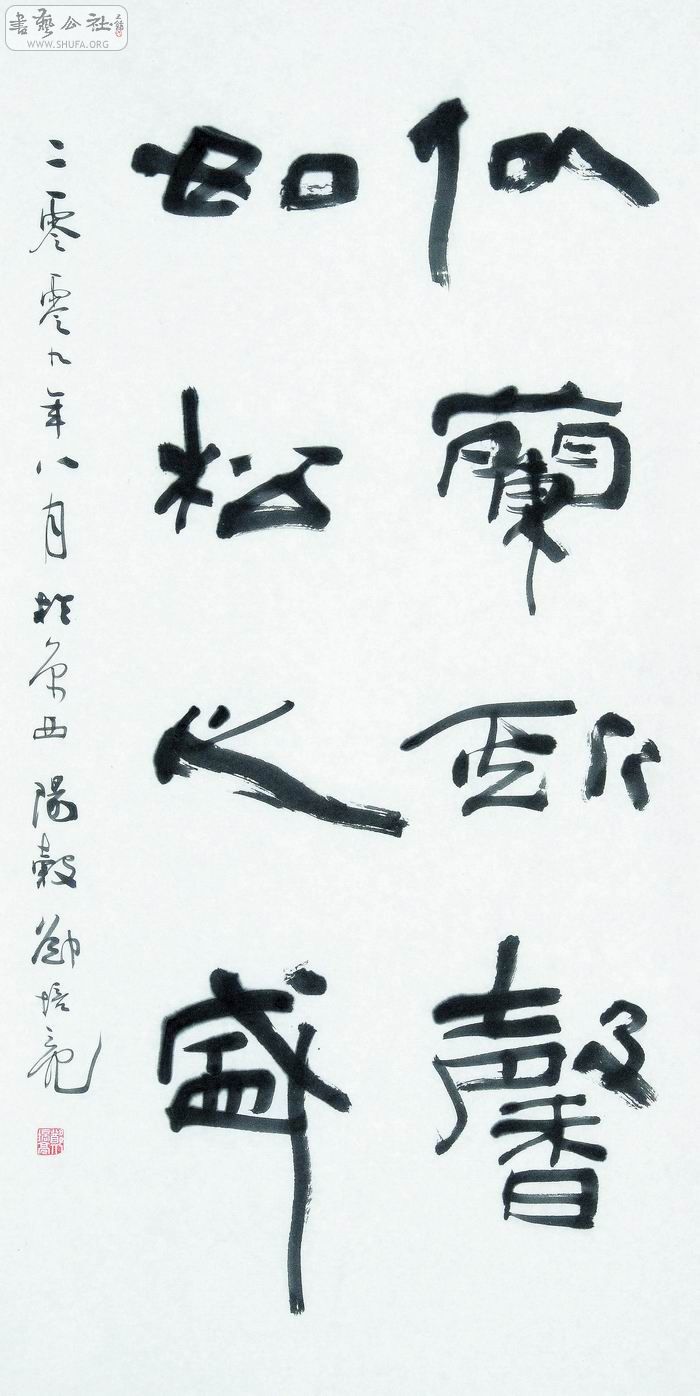 書藝公社
WWW.SHUFA.ORG
似蘭斯馨
如松之盛
二零零九年八月於京西陽穀 培亮